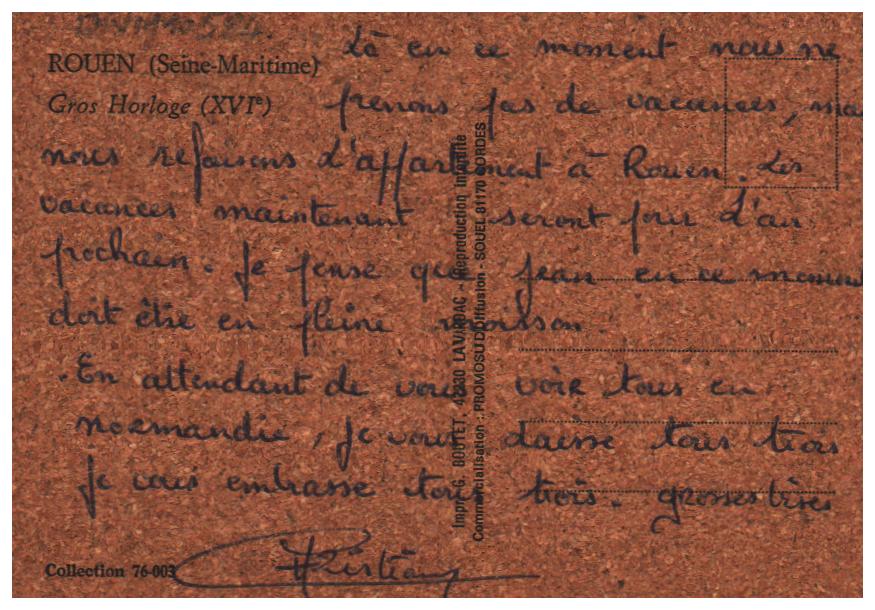 ROUEN (Seine-Maritime)
Gros Horloge (XVIe)
Là en ce moment nous ne
prenons pas de vacances, mai
nous refaisons l'appartement à Rouen. Les
vacances maintenant seront pour l'an
prochain. Je pense que Jean en ce moment
doit être en pleine moisson.
En attendant de vous voir tous en
normandie, je vous laisse tous trois
Je vous embrasse tous trois. grosses bises
Christian
Collection 76-003
Impr. G. BOUTET, LAVARDAC - Reproduction interdite
Commercialisation : PROMOSUD Diffusion - SOUEL 81170 CORDES